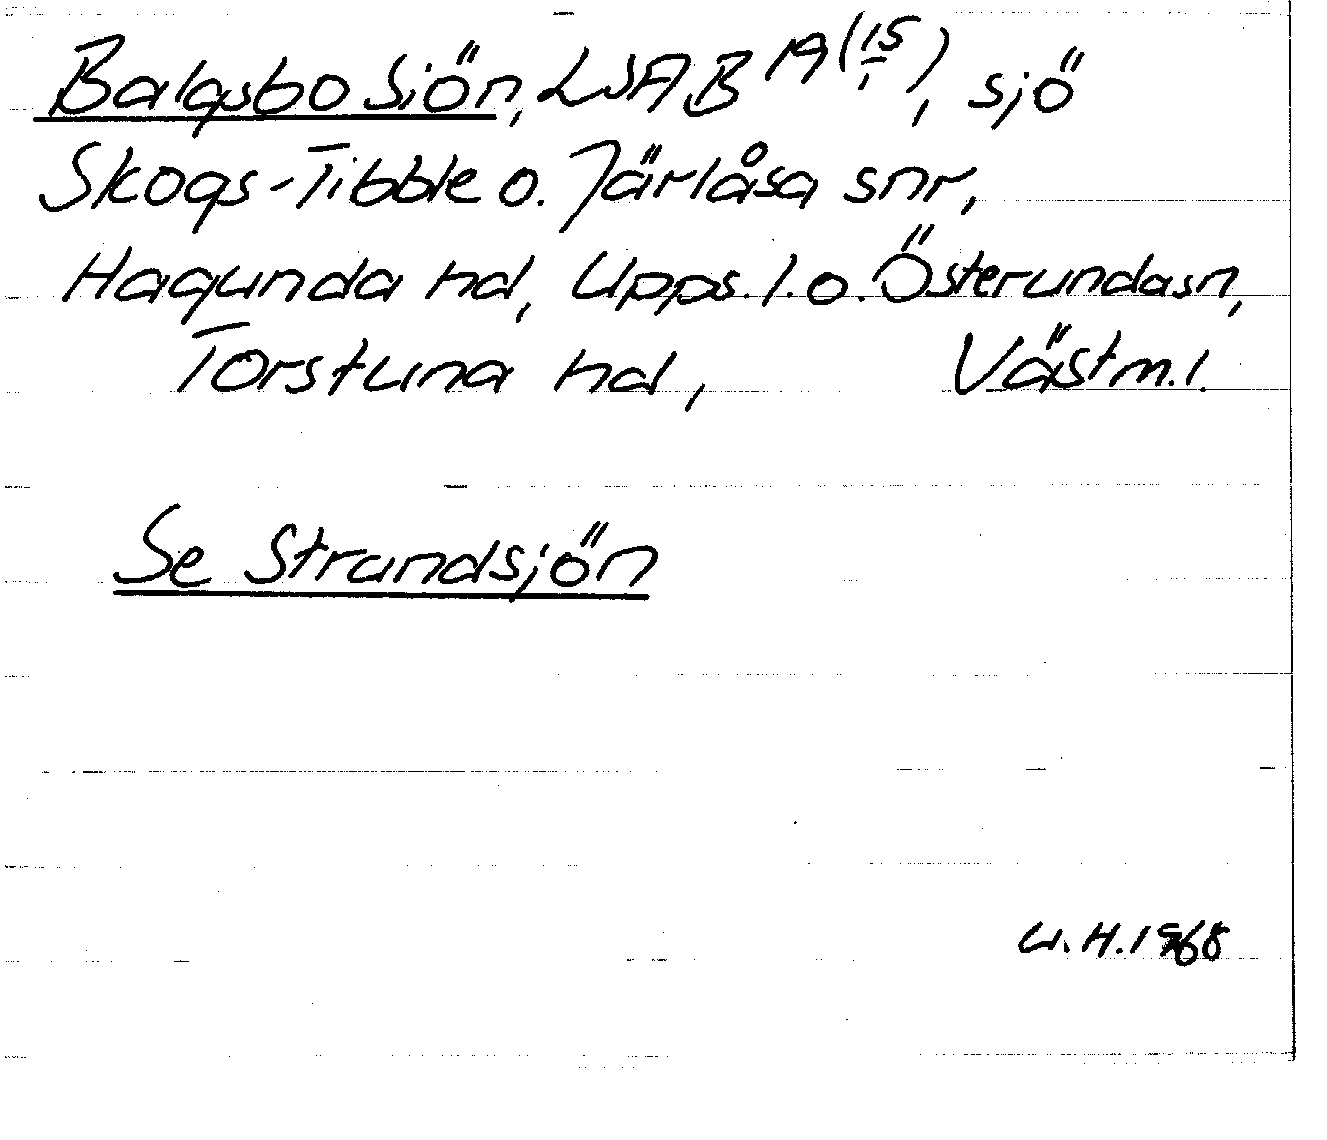 Balgsbo Sjön, LSA B 19 (15/1), sjö
Skogs-Tibble o. Järlåsa snr,
Hagunda hd, Upps. l. o. Österundasn,
Torstuna hd, Västm. l.
Se Strandsjön
U. H. 1968